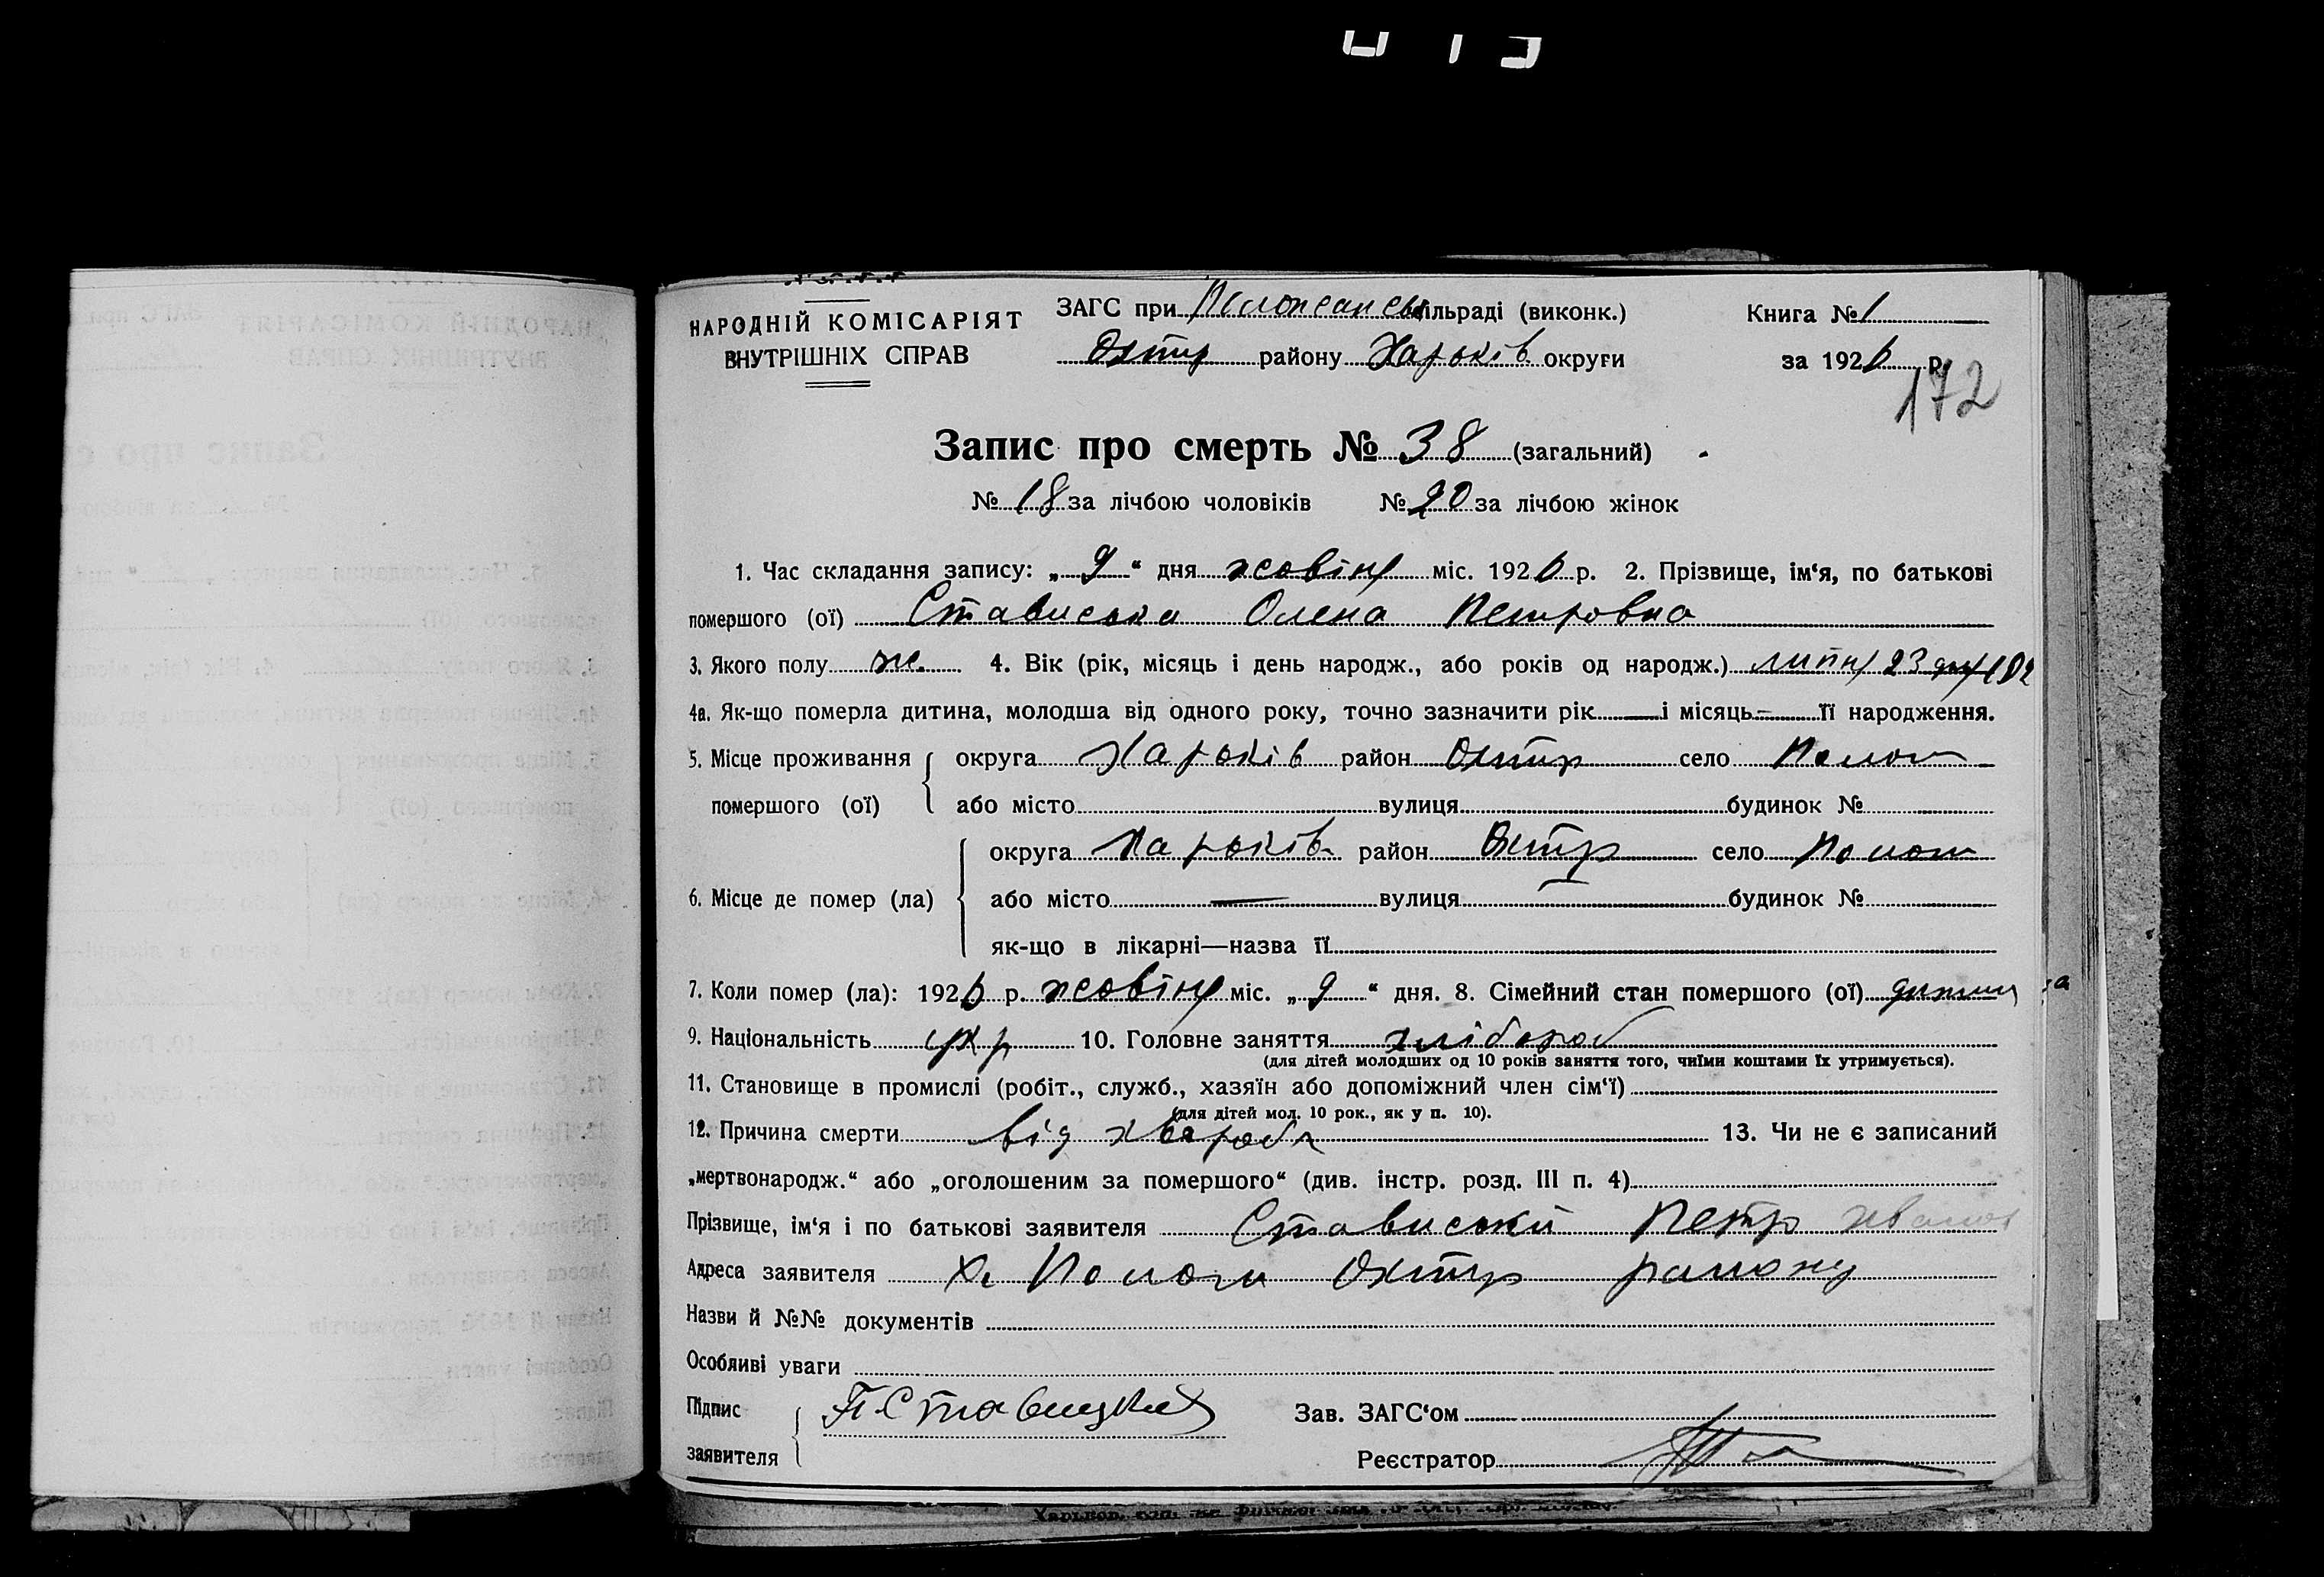 НАРОДНІЙ КОМІСАРІЯТ
ВНУТРІШНІХ СПРАВ
ЗАГС при сільраді (виконк.)
Охтир району Харьків округи
Книга № 1
за 1926 р.
172
Запис про смерть № 38 (загальний)
№ 18 за лічбою чоловіків № 20 за лічбою жінок
1. Час складання запису: „ 9 “ дня жовтня міс. 1926 р. 2. Прізвище, ім‘я, по батькові
помершого (ої) Стависька Олена Петровна
3. Якого полу ж. 4. Вік (рік, місяць і день народж., або років од народж.) липня 23 дня 192
4а. Як-що померла дитина, молодша від одного року, точно зазначити рік — і місяць — її народження.
5. Місце проживання помершого (ої) округа Харьків район Охтир село Полом
або місто вулиця будинок №
6. Місце де помер (ла) округа Харьків район Охтир село Полом
або місто — вулиця — будинок №
як-що в лікарні—назва її
7. Коли помер (ла): 1926 р. жовтня міс. „ 9 “ дня. 8. Сімейний стан помершого (ої) дитина
9. Національність укр 10. Головне заняття хлібороб
(для дітей молодших од 10 років заняття того, чиїми коштами їх утримується).
11. Становище в промислі (робіт., служб., хазяїн або допоміжний член сім‘ї)
(для дітей мол. 10 рок., як у п. 10).
12. Причина смерти від хвороби 13. Чи не є записаний
„мертвонародж.“ або „оголошеним за помершого“ (див. інстр. розд. III п. 4)
Прізвище, ім‘я і по батькові заявителя Стависький Петр Иванов
Адреса заявителя х. Полом Охтир району
Назви й №№ документів
Особливі уваги
Підпис заявителя П. Ставицкий
Зав. ЗАГС‘ом
Реєстратор